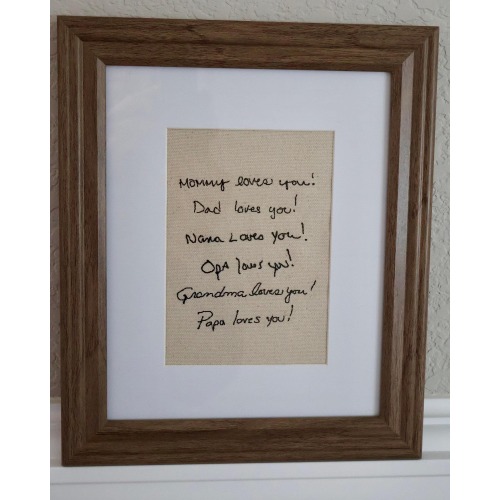 Mommy loves you!
Dad loves you!
Nana Loves You!
Opa loves you!
Grandma loves you!
Papa loves you!